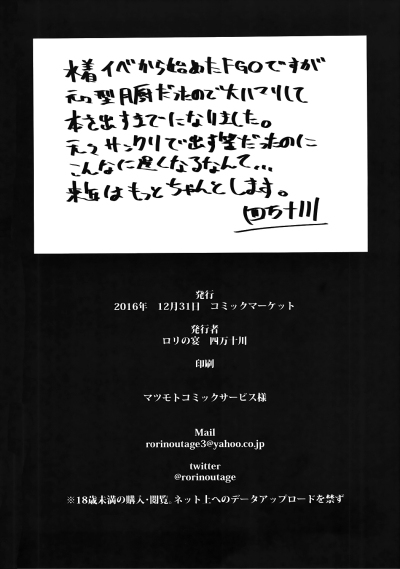 水着イベから始めたFGOですが
元々型月厨だったので大ハマりして
本を出すまでになりました。
元々サンクリで出す筈だったのに
こんなに遅くなるなんて…
来年はもっとちゃんとします。
四万十川
発行
2016年 12月31日 コミックマーケット
発行者
ロリの宴 四万十川
印刷
マツモトコミックサービス様
Mail
rorinoutage3@yahoo.co.jp
twitter
@rorinoutage
※18歳未満の購入・閲覧。ネット上へのデータアップロードを禁ず